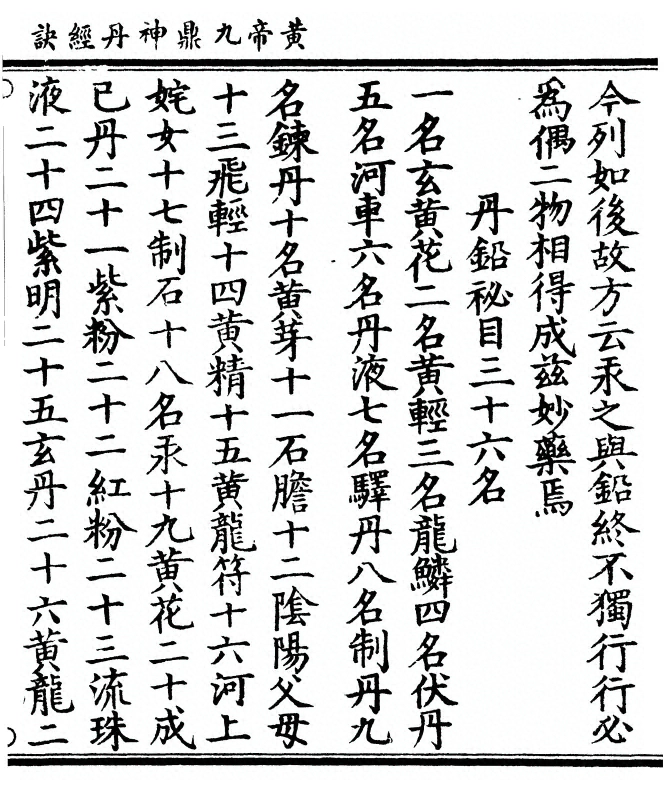 黃帝九鼎神丹經訣
今列如後故方云汞之與鉛終不獨行行必
為偶二物相得成茲妙藥焉
丹鉛祕目三十六名
一名玄黃花二名黃輕三名龍鱗四名伏丹
五名河車六名丹液七名驛丹八名制丹九
名鍊丹十名黃芽十一石膽十二陰陽父母
十三飛輕十四黃精十五黃龍符十六河上
姹女十七制石十八名汞十九黃花二十成
已丹二十一紫粉二十二紅粉二十三流珠
液二十四紫明二十五玄丹二十六黃龍二